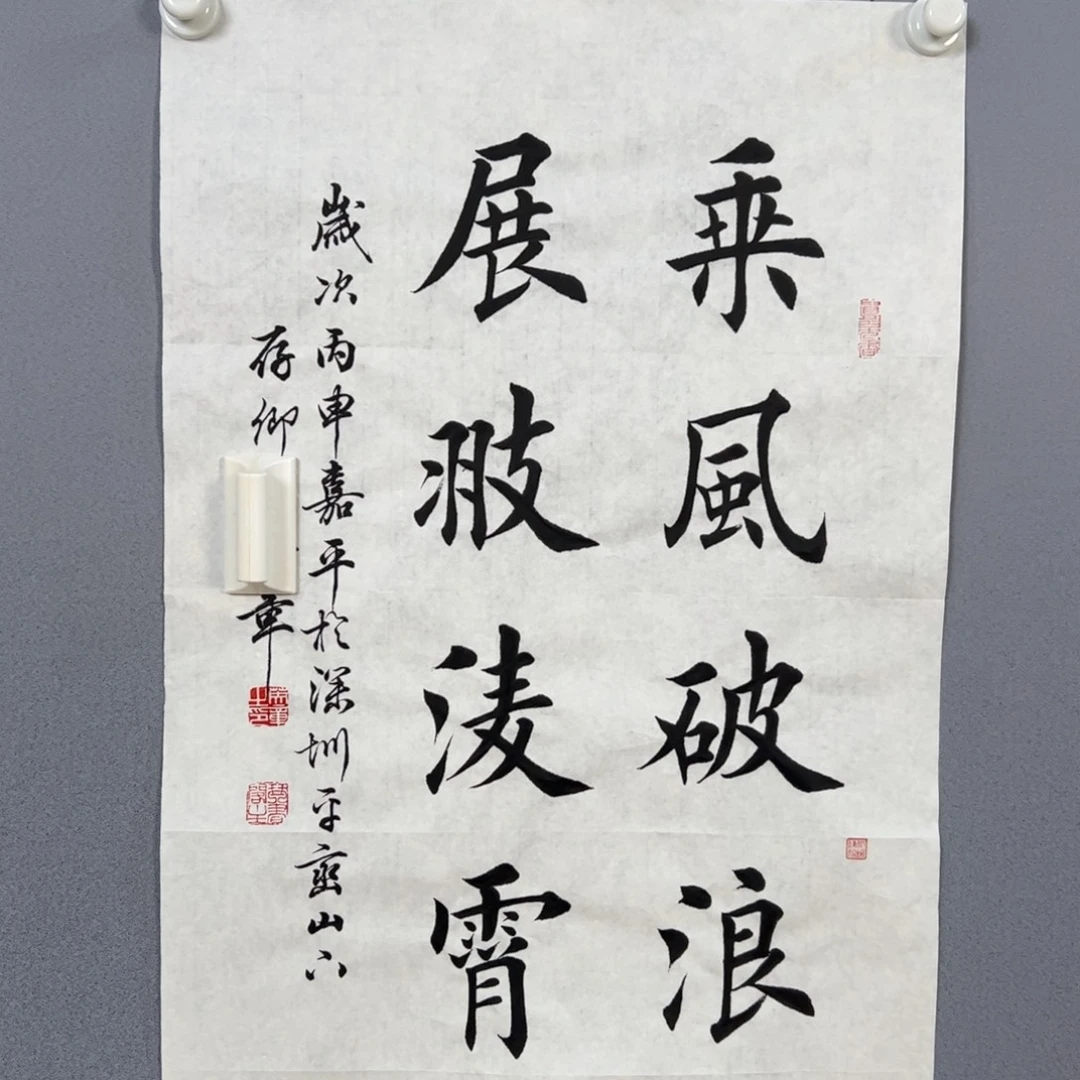 乗風破浪
展翄淩霄
歲次丙申嘉平於深圳平巒山下
存卿 軍